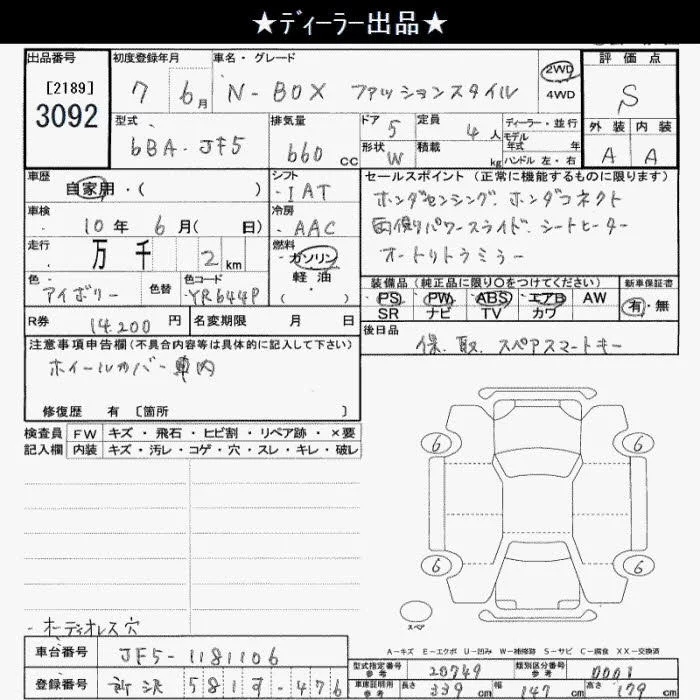 ★ディーラー出品★
出品番号
[2189]
3092
初度登録年月
7 6月
車名・グレード
N-BOX ファッションスタイル
2WD
4WD
評価点
S
外装 内装
A A
型式
6BA-JF5
排気量
660 cc
ドア 5
形状 W
定員 4人
積載 kg
ディーラー・並行
モデル年式 年
ハンドル 左・右
車歴
自家用・( )
シフト
IAT
セールスポイント (正常に機能するものに限ります)
ホンダセンシング ホンダコネクト
両側パワースライド シートヒーター
オートリトラミラー
車検
10年 6月( 日)
冷房
AAC
走行
万 千 2 km
燃料
ガソリン
軽・油
( )
色
アイボリー
色替
色コード
YR644P
装備品 (純正品に限り○をつけてください)
PS PW ABS エアB AW
SR ナビ TV カワ
新車保証書
有・無
R券 14,200 円
名変期限 月 日
後日品
保.取.スペアスマートキー
注意事項申告欄(不具合内容等は具体的に記入して下さい)
ホイールカバー車内
修復歴 有 [箇所 ]
検査員 FW キズ・飛石・ヒビ割・リペア跡・×要
記入欄 内装 キズ・汚レ・コゲ・穴・スレ・キレ・破レ
6 6
6 6
スペア
・オーディオレス穴
A-キズ E-エクボ U-凹み W-補修跡 S-サビ C-腐食 XX-交換済
車台番号 JF5-1181106
登録番号 581 476
型式指定番号参考 20749
類別区分番号参考 0001
車庫証明用参考 長さ 339 cm 幅 147 cm 高さ 179 cm